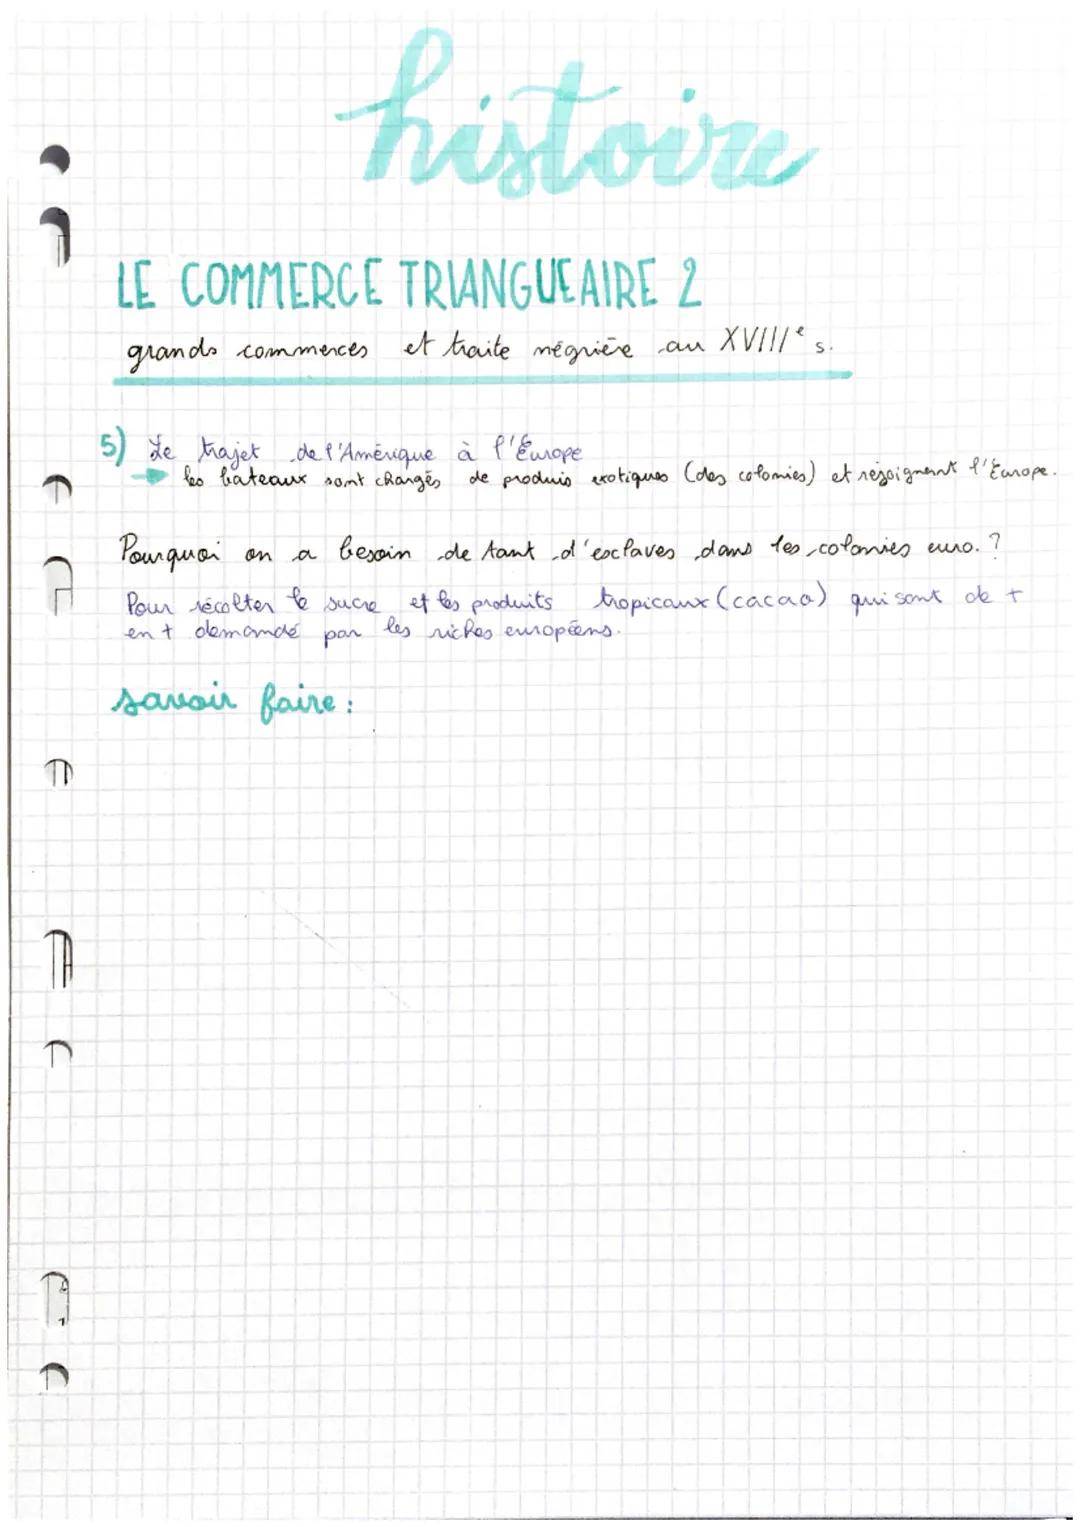 histoire
LE COMMERCE TRIANGUEAIRE 2
grands commerces et traite négrière au XVIIIe s.
5) Le trajet de l'Amérique à l'Europe
les bateaux sont changés de produis exotiques (des colomies) et rejoignent l'Europe.
Pourquoi on a besoin de tant d'esclaves dans les colonies euro. ?
Pour récolter le sucre et les produits tropicaux (cacao) qui sont de +
en + demandé par les riches européens.
savoir faire :